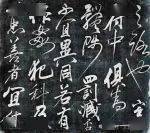 之路也宮
中府中俱為
體陟罰臧否
不宜異同若有
作姦犯科及
忠善者宜付